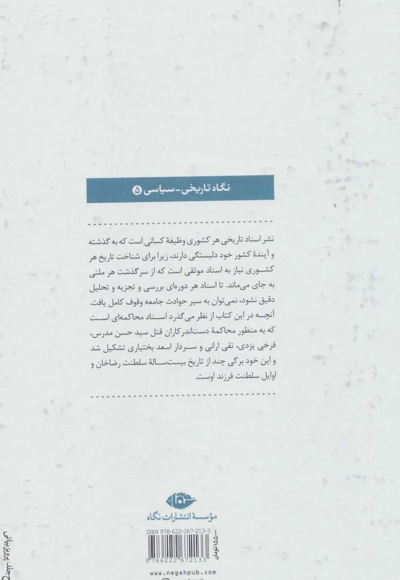 نگاه تاریخی-سیاسی ۵
نشر اسناد تاریخی هر کشوری وظیفهٔ کسانی است که به گذشته
و آیندهٔ کشور خود دلبستگی دارند، زیرا برای شناخت تاریخ هر
کشوری نیاز به اسناد موثقی است که از سرگذشت هر ملتی
به جای می‌ماند. تا اسناد هر دوره‌ای بررسی و تجزیه و تحلیل
دقیق نشود، نمی‌توان به سیر حوادث جامعه وقوف کامل یافت.
آنچه در این کتاب از نظر می‌گذرد اسناد محاکمه‌ای است
که به منظور محاکمهٔ دست‌اندرکاران قتل سید حسن مدرس،
فرخی یزدی، تقی ارانی و سردار اسعد بختیاری تشکیل شد
و این خود برگی چند از تاریخ بیست‌سالهٔ سلطنت رضاخان و
اوایل سلطنت فرزند اوست.
مؤسسهٔ انتشارات نگاه
ISBN: 978-622-267-213-3
9786222672133
www.negahpub.com